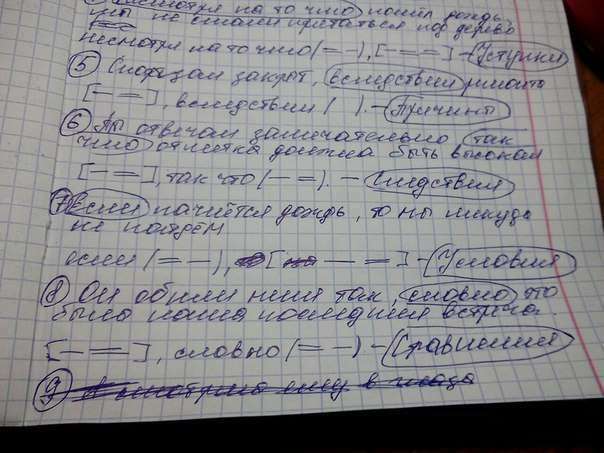 несмотря на то что пошёл дождь,
мы не стали прятаться под дерево
несмотря на то что (= –), [– = =] – Уступки
5 Спортзал закрыт, вследствии ремонта
[– =], вследствии ( ). – Причины
6 Ты отвечал замечательно так
что отметка должна быть высокая
[– =], так что (– =). – Следствия
7 Если начнётся дождь, то мы никуда
не пойдём
если (= –), [– =] – Условия
8 Он обнял меня так, словно это
была наша последняя встреча.
[– =], словно (= –) – Сравнения
9